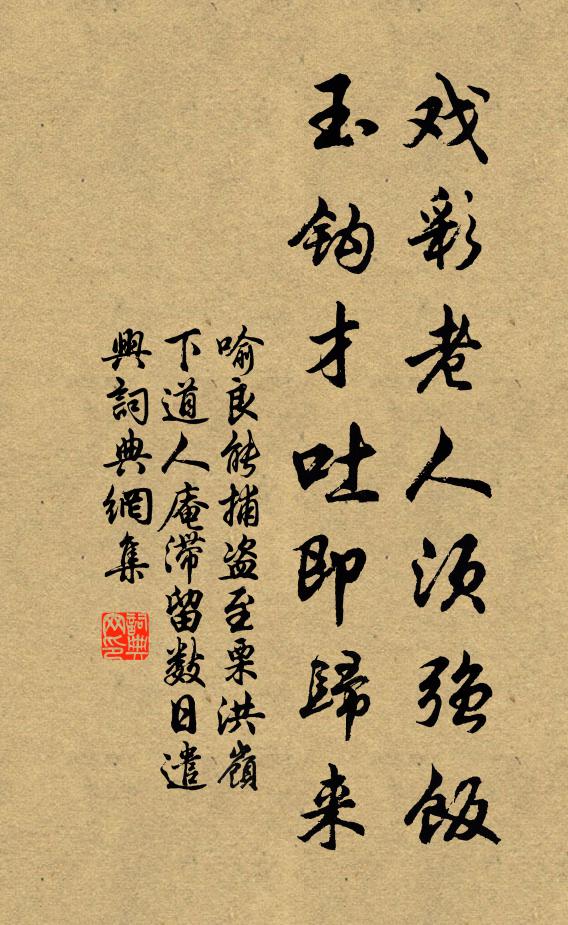 戏彩老人须强飯
玉鈎才吐即歸来
喻良能捕盗至栗洪嶺
下道人庵滞留数日遣
興詞典網集
詞典
网印